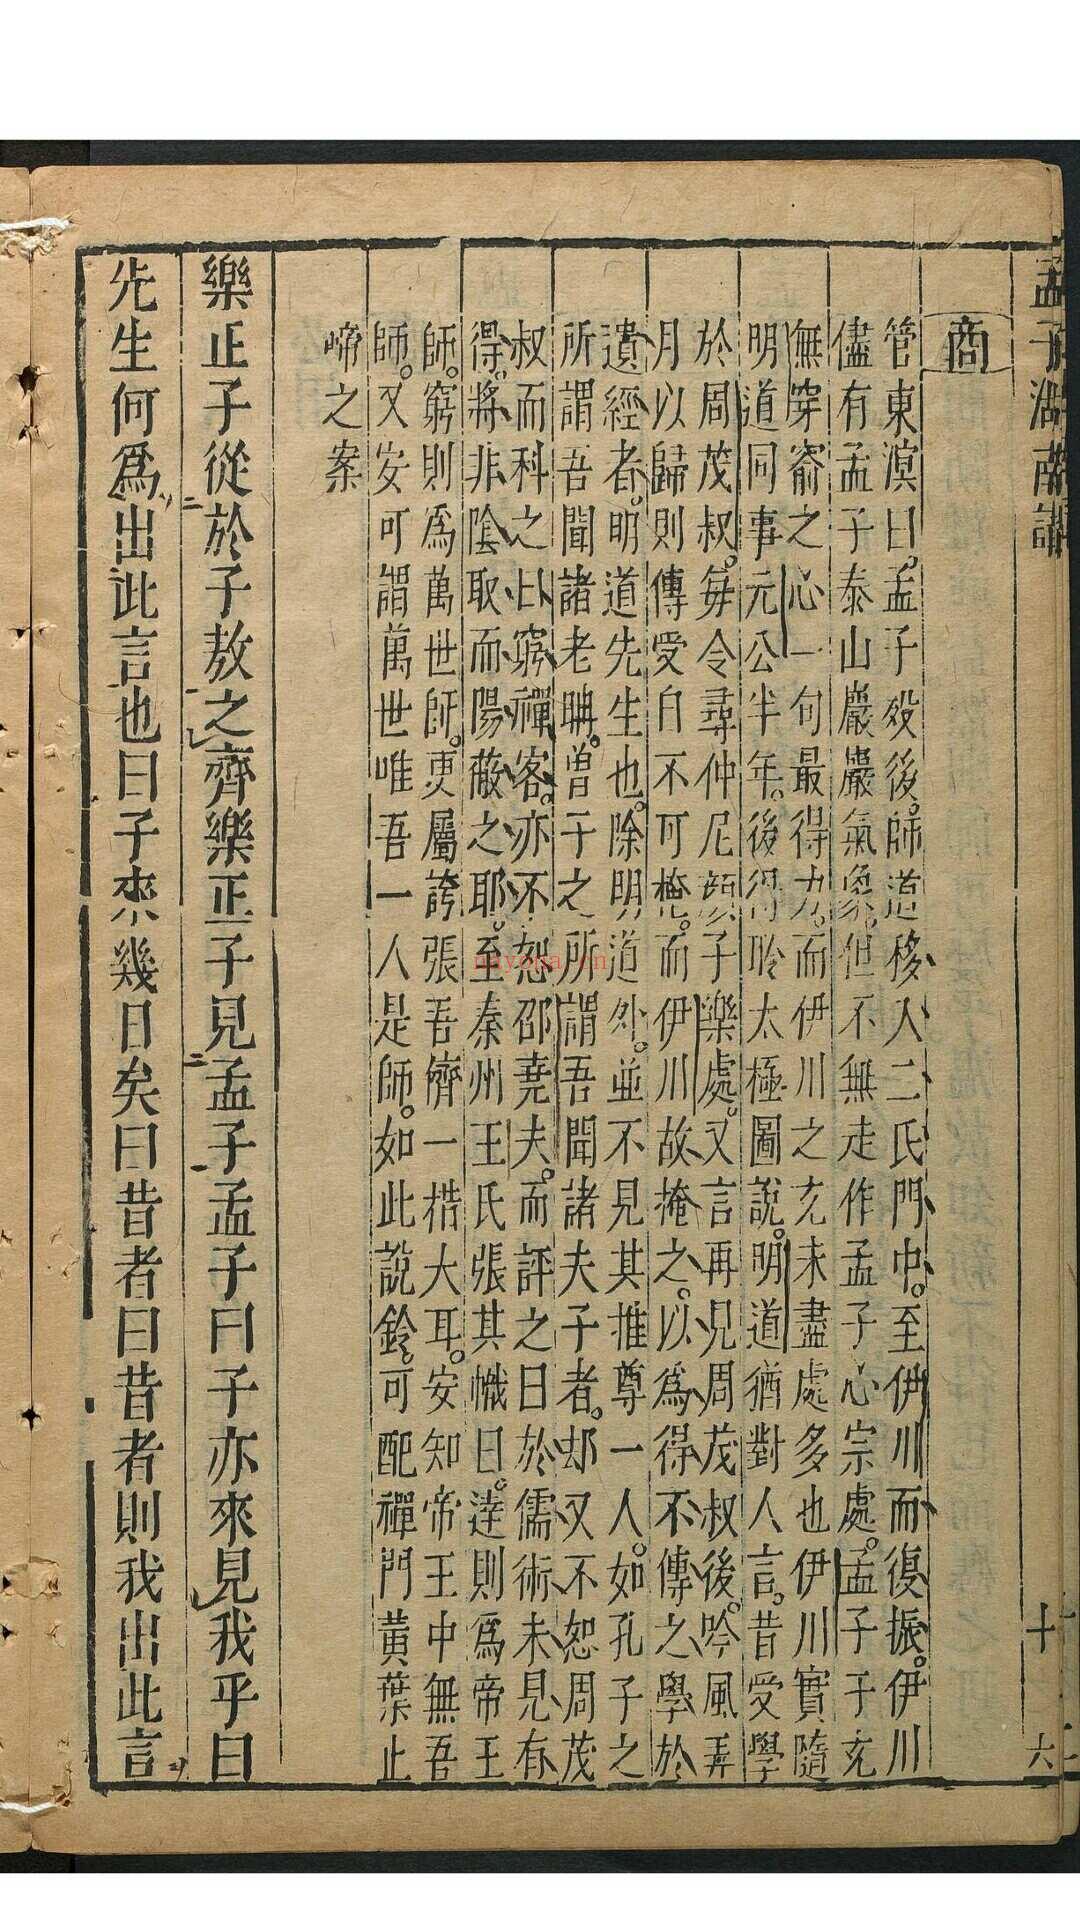 孟子湖南講
十六
商
管東溟曰。孟子歿後。師道移入二氏門中。至伊川而復振。伊川
儘有孟子泰山巖巖氣象。但不無走作孟子心宗處。孟子于充
無穿窬之心一句最得力。而伊川之充未盡處多也伊川實隨
明道同事元公半年。後得聆太極圖說。明道猶對人言。昔受學
於周茂叔。每令尋仲尼顏子樂處。又言再見周茂叔後。吟風弄
月以歸則傳受自不可掩。而伊川故掩之。以為得不傳之學於
遺經者。明道先生也。除明道外。並不見其推尊一人。如孔子之
所謂吾聞諸老聃。曾子之所謂吾聞諸夫子者。却又不恕周茂
叔而科之以窮禪客。亦不恕邵堯夫。而評之曰於儒術未見有
得。將非陰取而陽蔽之耶。至秦州王氏張其幟曰。達則為帝王
師。窮則為萬世師。更屬誇張吾儕一措大耳。安知帝王中無吾
師。又安可謂萬世唯吾一人是師。如此說鈴。可配禪門黃葉止
啼之案
樂正子從於子敖之齊樂正子見孟子孟子曰子亦來見我乎曰
先生何為出此言也曰子來幾日矣曰昔者曰昔者則我出此言
nayona.cn